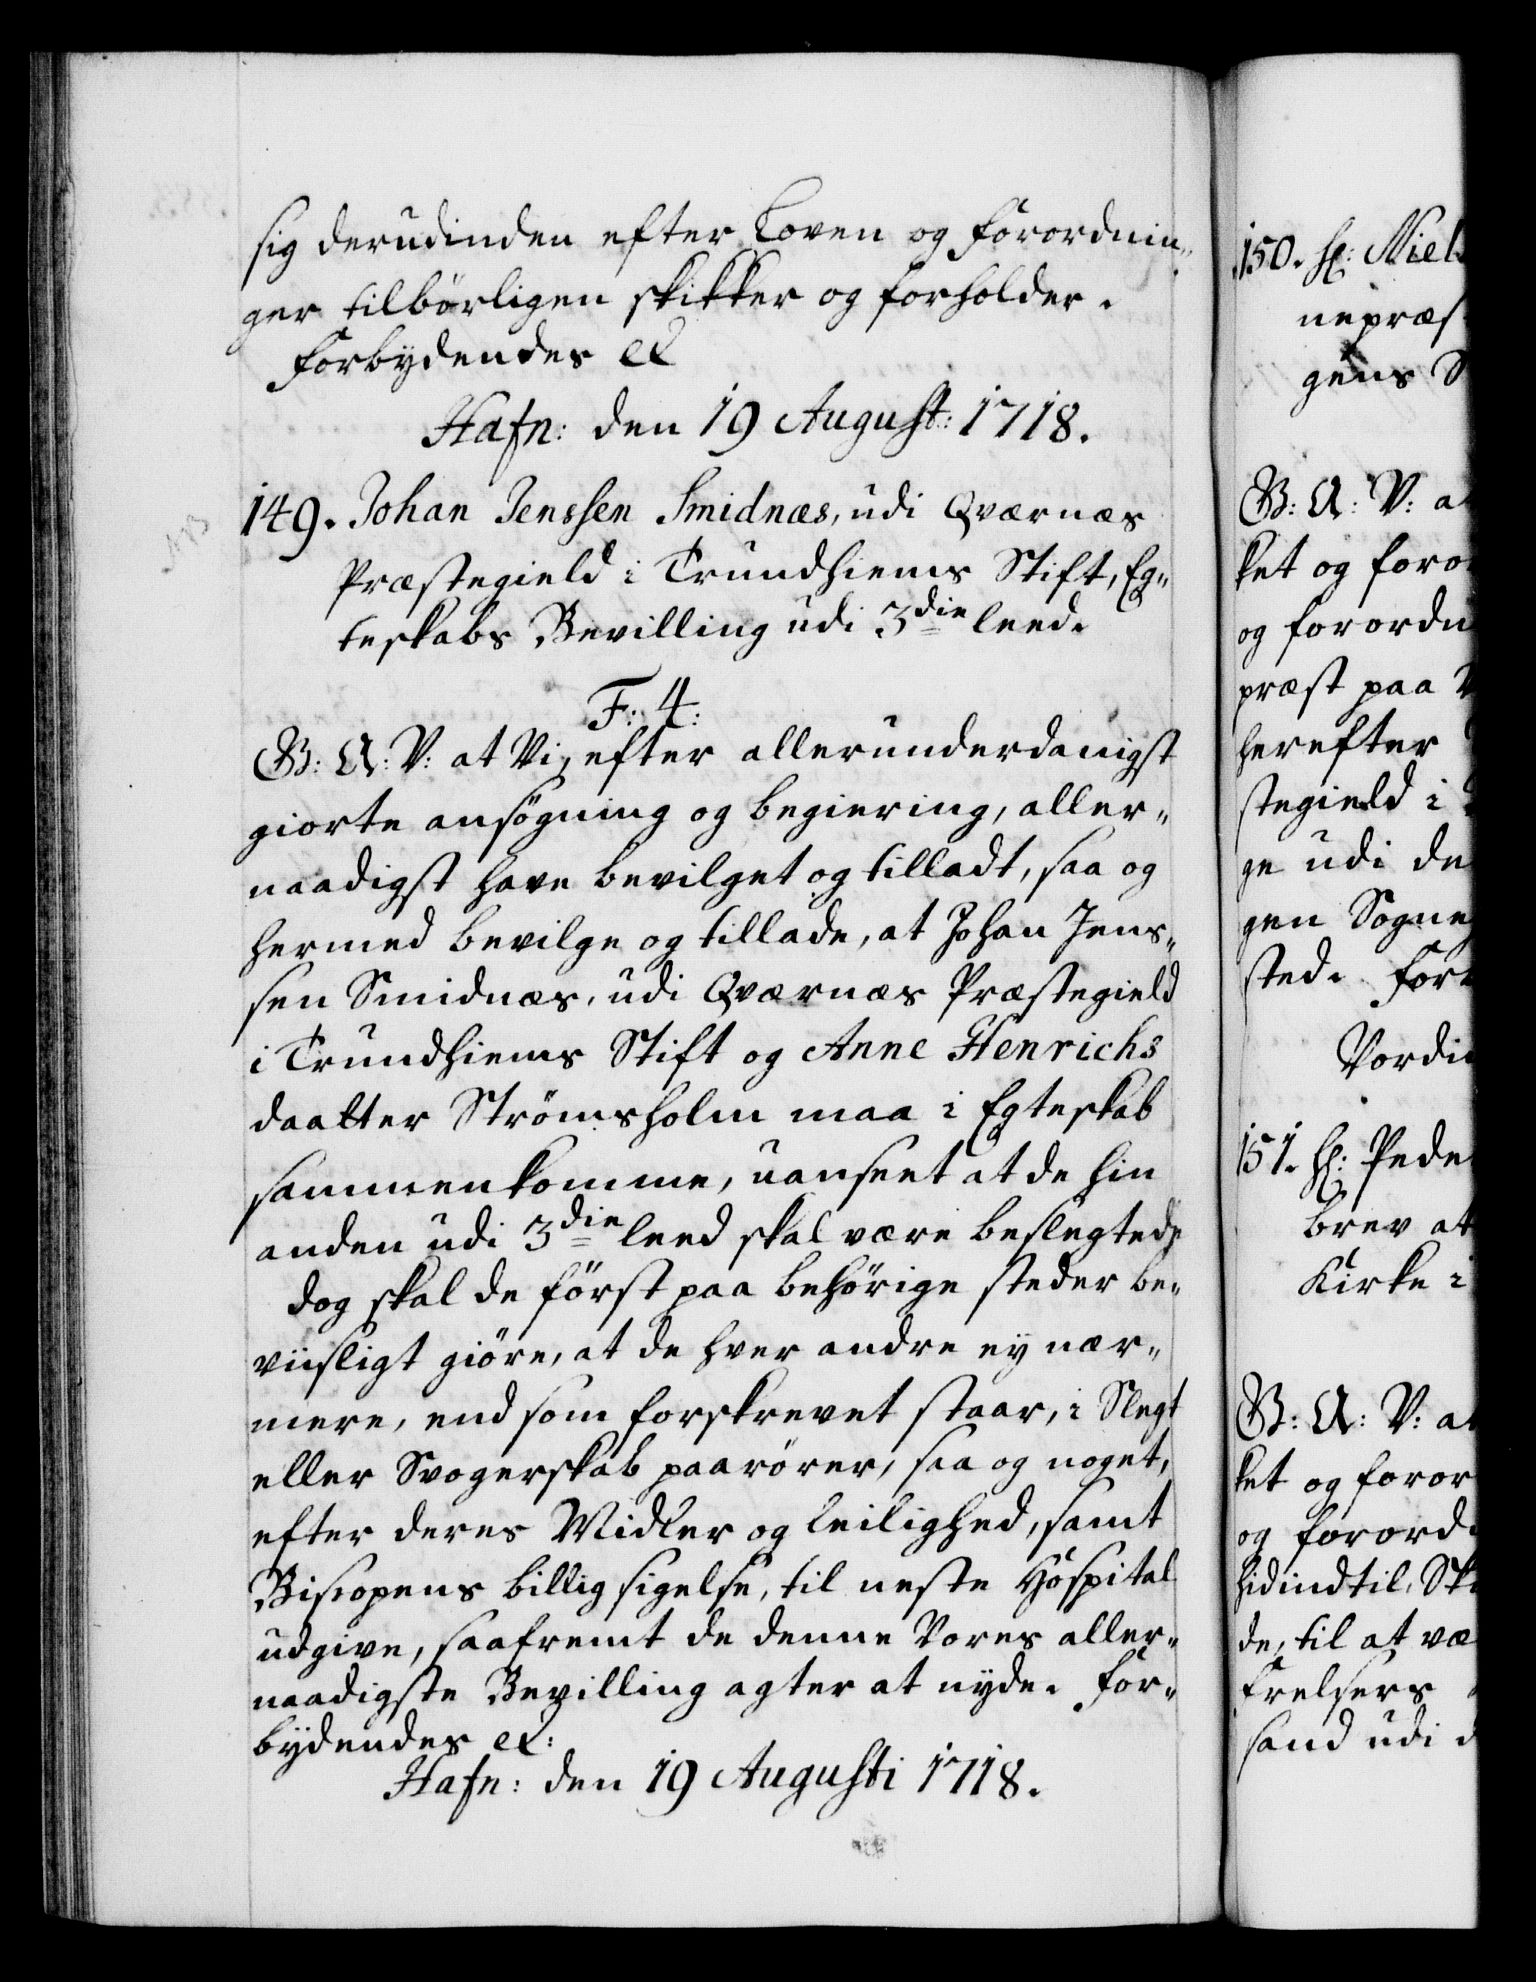 sig derudinden efter Loven og forordnin„
ger tilbörligen skikker og forholder.
Forbydendes &
Hafn: den 19 August: 1718.
149. Johan Jenssen Smidnæs, udi Qværnæs
Præstegield i Trundhiems Stift, Eg„
teskabs Bevilling udi 3die leed.
F: 4:
G: A: V: at Vi, efter allerunderdanigst
giorte ansögning og begiering, aller„
naadigst have bevilget og tilladt, saa og
hermed bevilge og tillade, at Johan Jens„
sen Smidnæs, udi Qværnæs Præstegield
i Trundhiems Stift og Anne Henrichs
daatter Strömsholm maa i Egteskab
sammenkomme, uanseet at de hin
anden udi 3die leed skal være beslegtede
dog skal de först paa behörige steder be„
viisligt giöre, at de hver andre ey nær„
mere, end som forskrevet staar, i Slegt
eller Svogerskab paarörer, saa og noget,
efter deres Midler og leilighed, samt
Biscopens billig sigelse, til neste Hospital
udgive, saafremt de denne Vores aller„
naadigste Bevilling agter at nyde. For„
bydendes &:
Hafn: den 19 Augusti 1718.
150. Hr: Niels
nepræs
gens S
G: A: V: at
ket og foror
og forordn
præst paa
herefter
stegield i
ge udi de
gen Sogne
sted. Forb
Vordi
151. Hr: Pede
brev at
Kirke i
G: A: V: at
ket og foror
og forord
hidindtil, Sk
de, til at væ
Frelsers
sand udi d